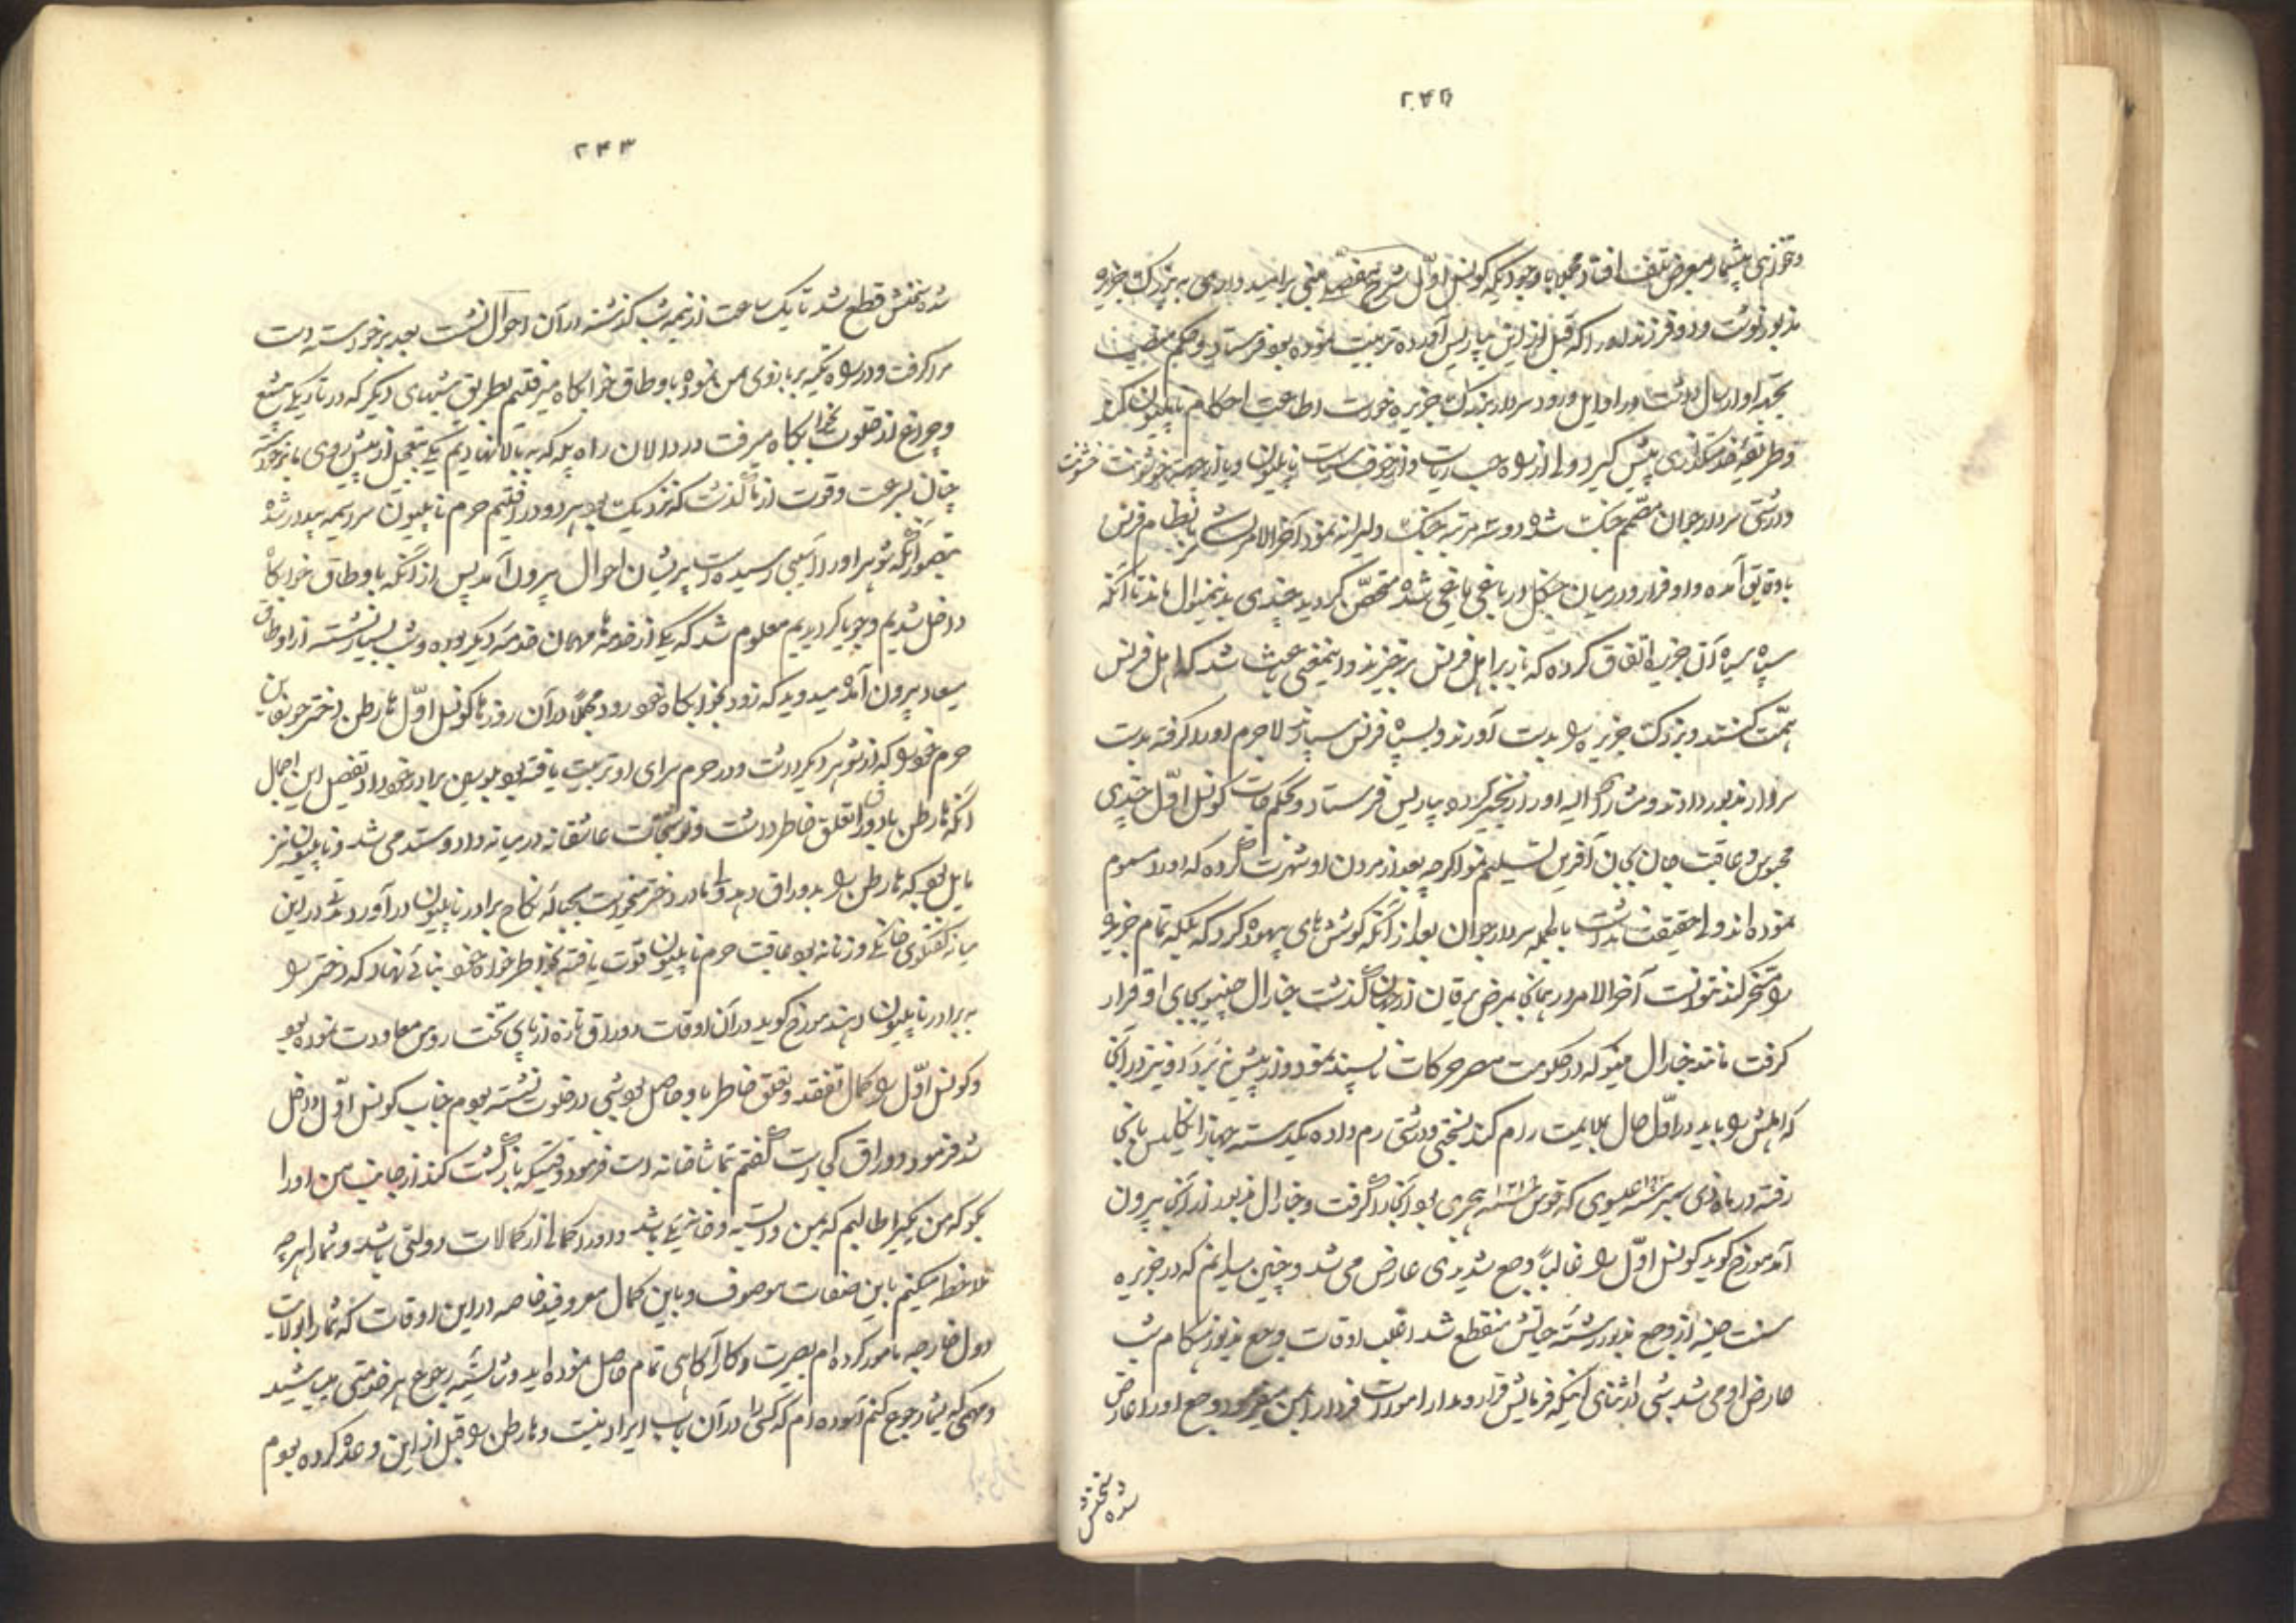 ۲۴۲
و خونهای بیشمار بمعرض تلف افتاد مجملا با وجودیکه کونسل اوّل شرح مفصّلی مبنی بر امیدواری به بزرک جزیره
مذبور نوشت و دو فرزند او را که قبل از این بپاریس آورده تربیت نموده بود فرستاد و حکم منصب
بجهة او ارسال داشت در اوایل ورود سردار بزرک جزیره خواست اطاعت احکام ناپلیون کند
و طریقهٔ خدمتکذاری پیش کیرد ولی از راه حب ریاست و از خوف سیاست ناپلیون و یا از جهة خشونت
و درشتی سردار جوان مصمّم جنک شده دو سه مرتبه جنک دلیرانه نمود آخرالامر لشکر با نظام فرنس
باو فایق آمده و او فرار و در میان جنکل در باغی یاغی شده متحصّن کردید چندی بدینمنوال ماند تا آنکه
سپاه سیاه آن جزیره اتفاق کرده که باز بر اهل فرنس برخیزند و اینمعنی باعث شد که اهل فرنس
همّت کنند و بزرک جزیره را بدست آورند و بسپاه فرنس سپارند لاجرم او را کرفته بدست
سردار مذبور دادند و مشارالیه او را زنجیر کرده بپاریس فرستاد و بحکم کونسل اوّل چندی
محبوس و عاقبت جان بجان آفرین تسلیم نمود اکرچه بعد از مردن او شهرت کرده که او را مسموم
نموده‌اند ولی حقیقت نداشت بالجمله سردار جوان بعد از آنکه کوشش‌های بیهوده کرد که بلکه تمام جزیره
را مسخّر کند نتوانست آخرالامر در همانجا بمرض یرقان از جهان کذشت جنارال بجای او قرار
کرفت مانند جنارال مینو که در حکومت مصر حرکات ناپسند نمود و از پیش نبرد او نیز در آنجا
که اهلش را باید در اوّل حال بملایمت رام کند بسختی و درشتی رم داده یکدسته جهاز انکلیس بآنجا
رفته در ماه عیسوی که قوس ۱۲۱۸ هجری بود آنجا را کرفت و جنارال مذبور از آنجا بیرون
آمد مورّخ کوید کونسل اوّل را غالباً وجع شدیدی عارض می شد و چنین میدانم که در جزیره
سنت هلینه از وجع مذبور رشتهٔ حیاتش منقطع شد اغلب اوقات وجع مذبور هنکام شب
عارض او می شد شبی در اثنای اینکه فرمایش قرار و مدار امورات فردا را بمن میفرمود وجع او را عارض
شده سخنش
۲۴۳
شده سخنش قطع شد تا یک ساعت از نیمه شب کذشته در آن احوال نشست بعد برخواسته دست
مرا کرفت و در راه تکیه بر بازوی من نموده باوطاق خوابکاه میرفتیم بطریق شبهای دیکر که در تاریکی بی‌شمع
و چراغ از خلوت بخوابکاه میرفت در دالان راه پله که ببالا نهادیم یکی بتعجیل از پیش روی ما برخورد
چنان بسرعت و قوت از ما کذشت که نزدیک بود هر دو در افتیم حرم ناپلیون سراسیمه بیدار شده
بتصوّر آنکه شوهر او را آسیبی رسیده است پریشان احوال بیرون آمد پس از آنکه باوطاق خوابکاه
داخل شدیم و جویا کردیدیم معلوم شد که یکی از خدمه‌ها مهمان خدمهٔ دیکر بوده و شب بسیار نشسته از اوطاق
میعاد بیرون آمده میدوید که زود بخوابکاه خود رود مجملاً در آن روزها کونسل اوّل هارطن دختر جوزفین
حرم خود را که از شوهر دیکر داشت و در حرم سرای او تربیت یافته بود بلویس برادر خود داد تفصیل این اجمال
آنکه هارطن با دوراق تعلق خاطر داشت و نوشتجات عاشقانه در میانه داد و ستد می شد و ناپلیون نیز
مایل بود که هارطن را بدوراق دهد ولی مادر دختر میخواست بحبالهٔ نکاح برادر ناپلیون درآورد مدتی در این
میانه کفتکوی خانکی و زنانه بود عاقبت حرم ناپلیون قوت یافته بخاطرخواه خود بنائی نهاد که دختر را
به برادر ناپلیون دهند مورّخ کوید در آن اوقات دوراق تازه از پای تخت روس معاودت نموده بود
و کونسل اوّل را کمال تفقد و تعلق خاطر باو حاصل بود شبی در خلوت نشسته بودم جناب کونسل اوّل داخل
شد فرمود دوراق کجاست کفتم تماشاخانه است فرمود وقتیکه بازکشت کند از جانب من او را
بکو که من یکی را طالبم که بمن وابسته و خانکی باشد و او را کمالی از کمالات دولتی باشد و شما را هر چه
ملاحظه میکنیم باین صفات موصوف و باین کمال معروفید خاصه در این اوقات که شما را بولایت
دول خارجه مامور کرده‌ام بصیرت و کارآکاهی تمام حاصل نموده‌اید و شایستهٔ رجوع هر خدمتی میباشید
و مهمی که بشما رجوع کنم آسوده‌ام که کسی را در آن باب ایراد نیست و هارطن را قبل از این وعده کرده بودم